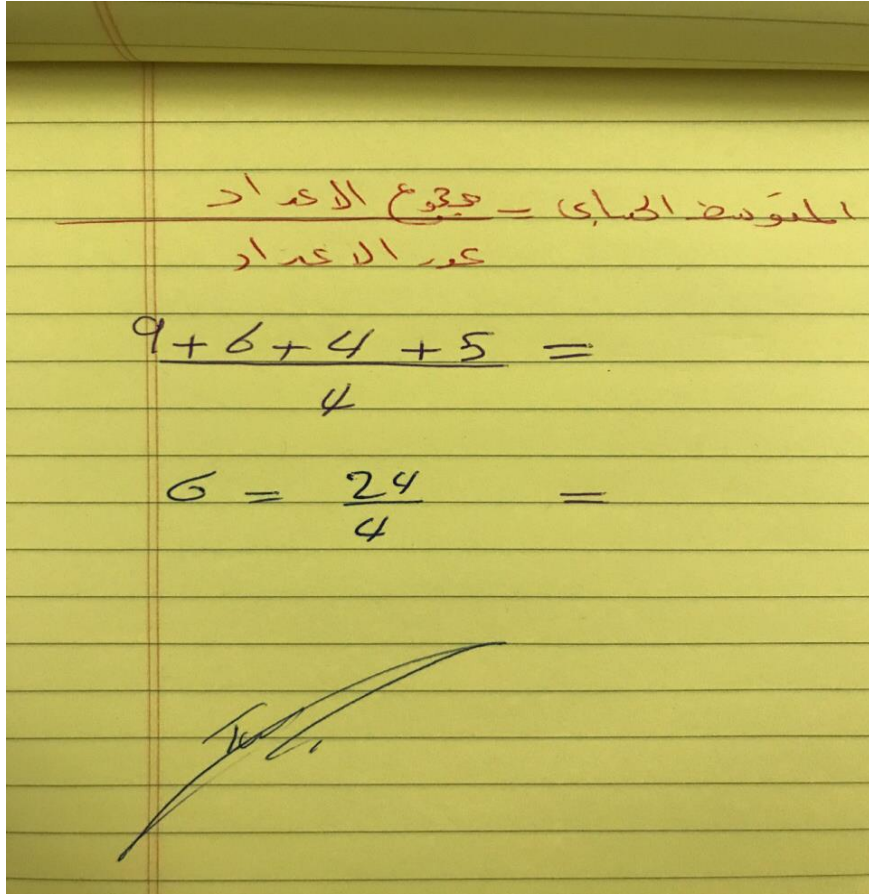 المتوسط الحسابي = مجموع الاعداد / عدد الاعداد
= 9 + 6 + 4 + 5 / 4
= 24 / 4 = 6